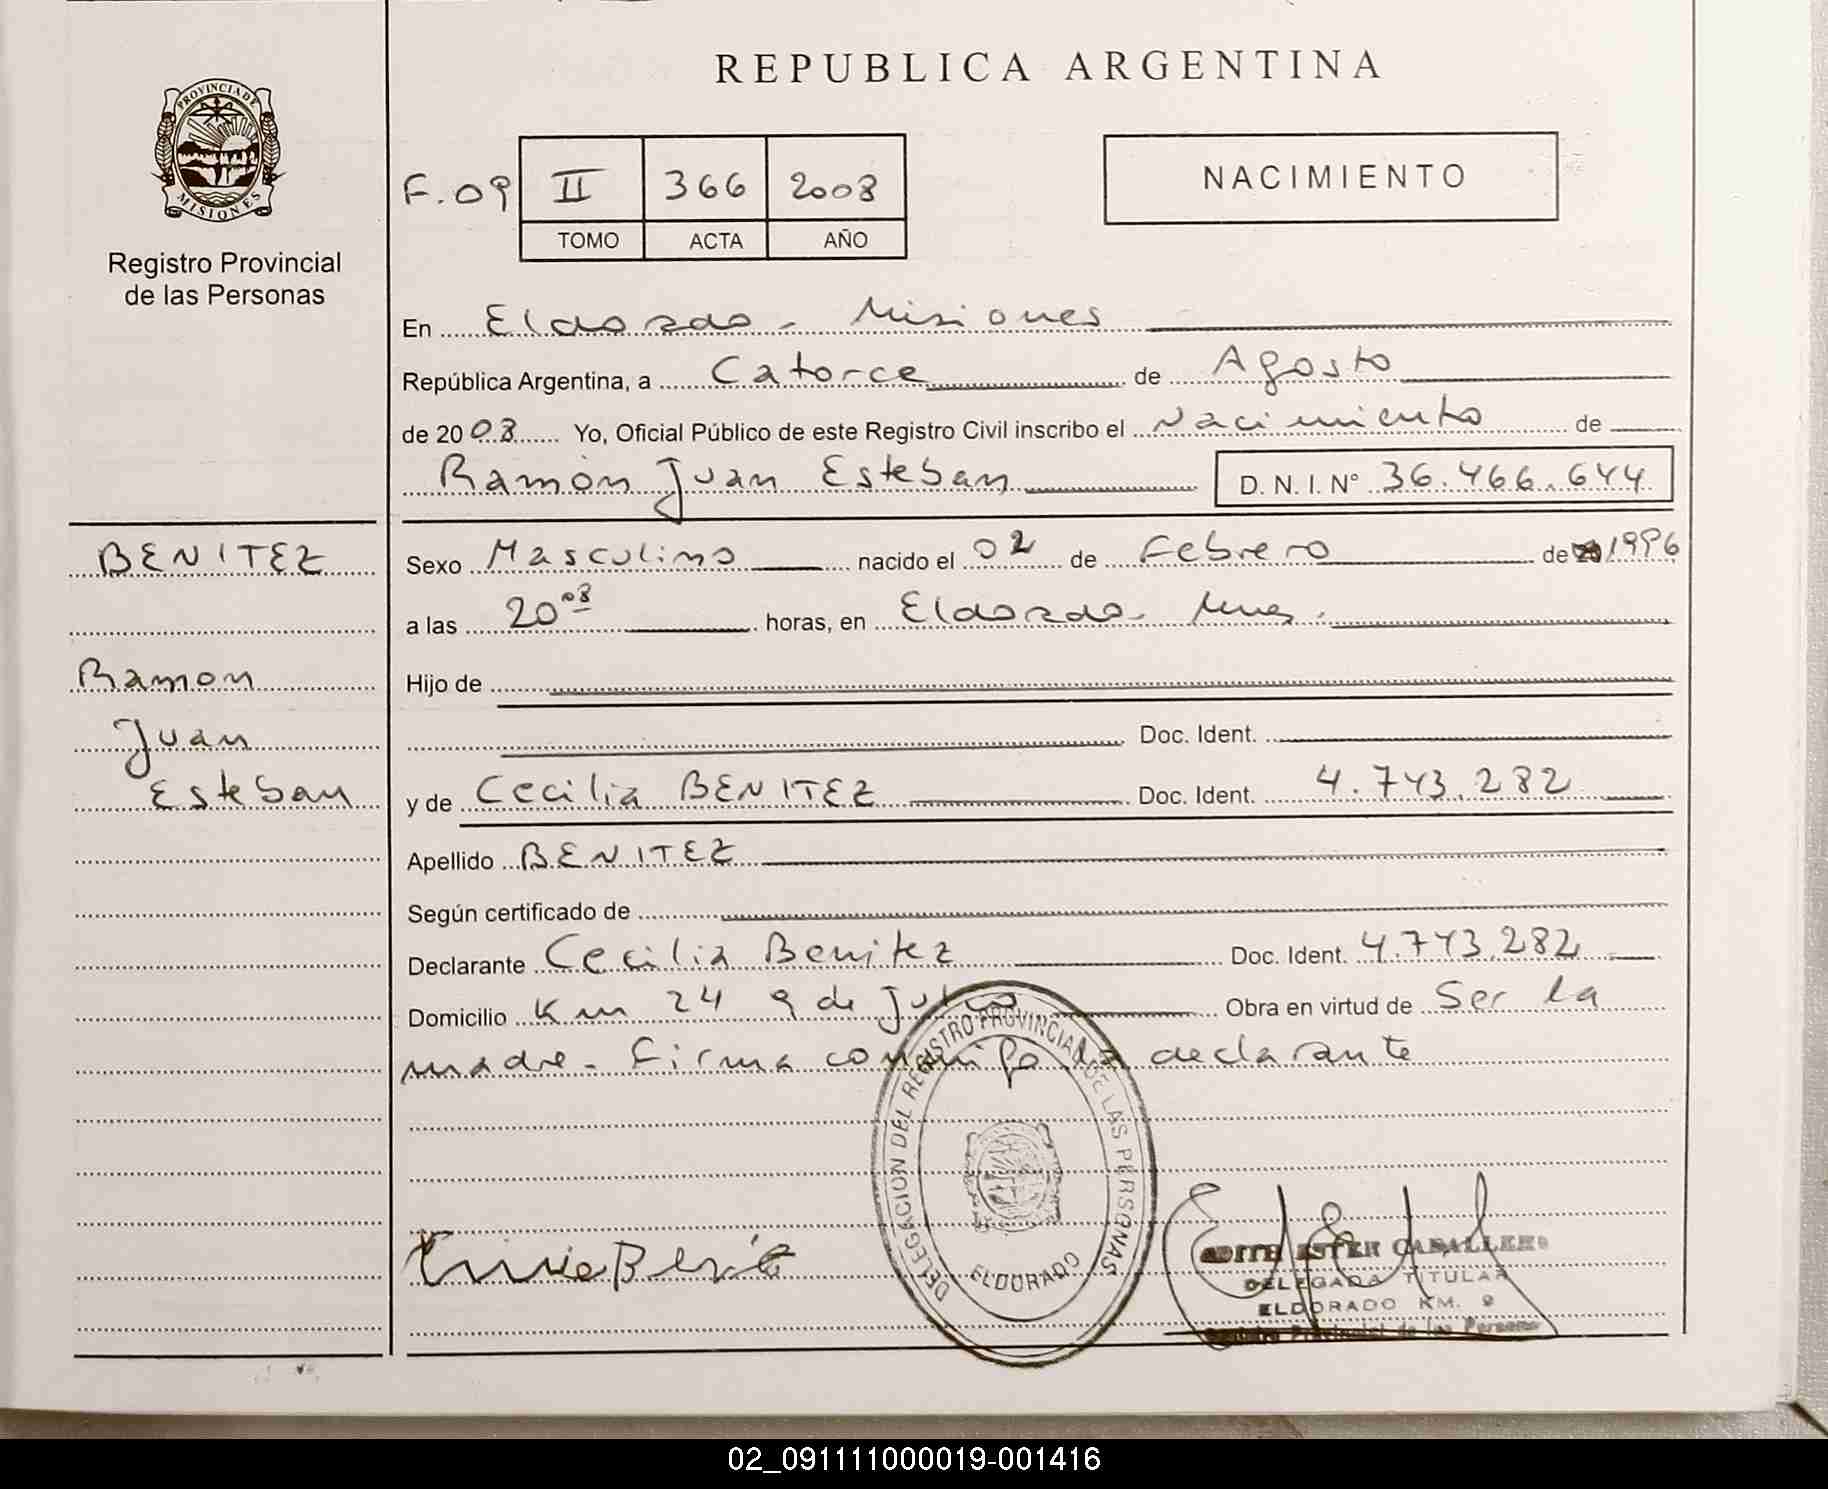 REPUBLICA ARGENTINA
PROVINCIA DE MISIONES
Registro Provincial
de las Personas
F. 09 II 366 2008
TOMO ACTA AÑO
NACIMIENTO
En Eldorado - Misiones
República Argentina, a Catorce de Agosto
de 20 08 Yo, Oficial Público de este Registro Civil inscribo el Nacimiento de
Ramón Juan Esteban D. N. I. Nº 36.466.644
BENITEZ
Ramon
Juan
Esteban
Sexo Masculino nacido el 02 de Febrero de 1996
a las 20 08 horas, en Eldorado - Mnes.
Hijo de
Doc. Ident.
y de Cecilia BENITEZ Doc. Ident. 4.743.282
Apellido BENITEZ
Según certificado de
Declarante Cecilia Benitez Doc. Ident. 4.743.282
Domicilio Km 24 9 de Julio Obra en virtud de Ser la
madre - Firma conmigo la declarante
DELEGACION DEL REGISTRO PROVINCIAL DE LAS PERSONAS
ELDORADO
EDITH ESTER CABALLERO
DELEGADA TITULAR
ELDORADO KM. 9
Registro Provincial de las Personas
02_091111000019-001416